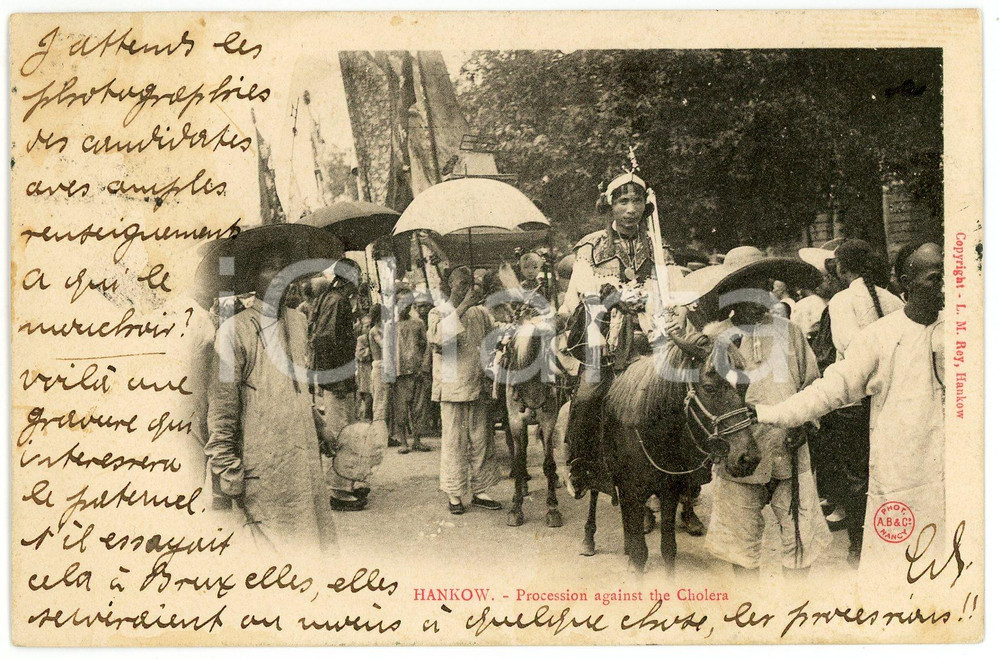 J'attends les
photographies
des candidates
avec amples
renseignements
A qui le
mouchoir?
voilà une
gravure qui
intéressera
le paternel.
S'il essayait
cela à Bruxelles, elles
serviraient au moins à quelque chose, les processions!!
HANKOW. - Procession against the Cholera
Copyright - L. M. Rey, Hankow
PHOT.
A.B & Cº
NANCY
iCharta